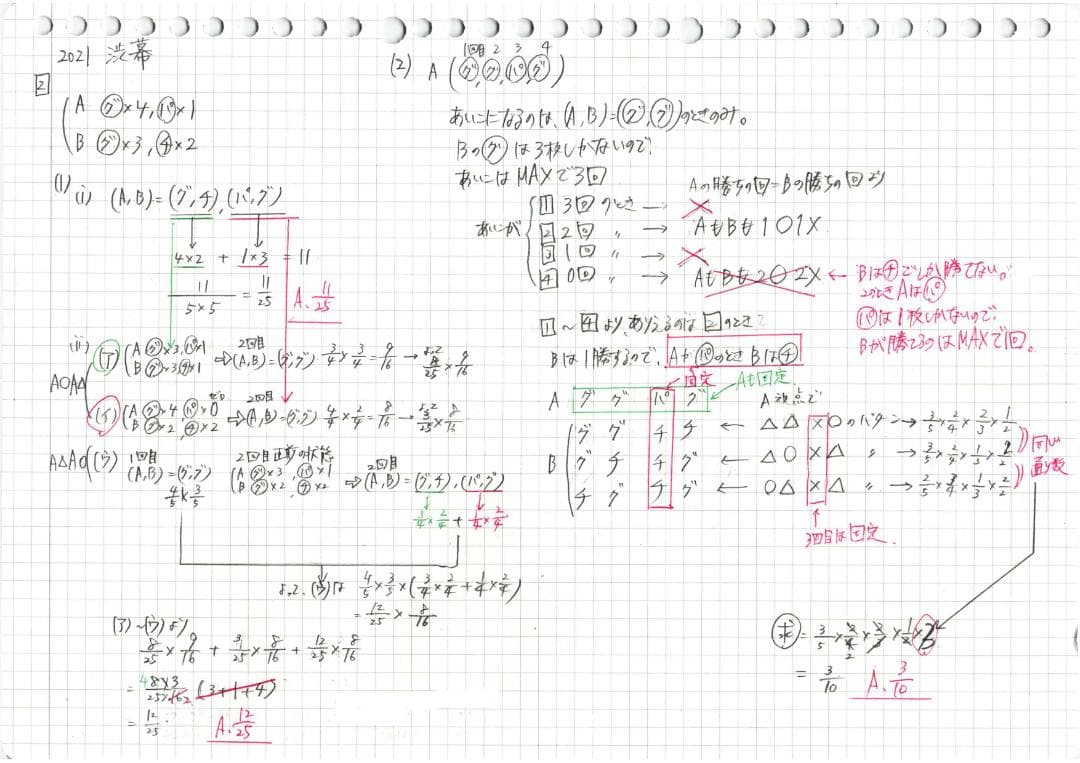 2021 渋幕
2
A グ×4, パ×1
B グ×3, チ×2
(1)
(i) (A, B) = (グ, チ), (パ, グ)
4×2 + 1×3 = 11
11/5×5 = 11/25
A. 11/25
(ii)
A○A△
(ア) (A グ×3, パ×1
B グ×3 チ×1
2回目
⇨(A,B)=(グ,グ) 3/4 × 3/4 = 9/16 → よって 8/25 × 9/16
(イ) (A グ×4 パ×0 ゼロ
B グ×2, チ×2
2回目
⇨(A,B)=(グ,グ) 4/4 × 2/4 = 8/16 → よって 3/25 × 8/16
A△A○ (ウ) 1回目
(A,B)=(グ,グ)
4/5 × 3/5
2回目直前の状態
(A グ×3, パ×1
B グ×2, チ×2
2回目
⇨(A,B)=(グ,チ), (パ,グ)
3/4 × 2/4 + 1/4 × 2/4
よって、(ウ)は 4/5 × 3/5 × (3/4 × 2/4 + 1/4 × 2/4)
= 12/25 × 8/16
(ア)~(ウ)より
8/25 × 9/16 + 3/25 × 8/16 + 12/25 × 8/16
= 8×3/25×16 (3+1+4)
= 12/25
A. 12/25
(2) A (グ, グ, パ, グ)
1回目 2 3 4
あいこになるのは、(A, B)=(グ, グ)のときのみ。
Bのグは3枚しかないので、
あいこはMAXで3回
Aの勝ちの回=Bの勝ちの回より
あいこが
1 3回のとき → ×
2 2回 〃 → AもBも1○1×
3 1回 〃 → ×
4 0回 〃 → AもBも2○2×
← Bはチでしか勝てない。
このときAはパ
パは1枚しかないので、
Bが勝てるのはMAXで1回。
1~4より、ありえるのは2のとき
Bは1勝するので、Aがパのとき Bはチ
固定
Aも固定
A グ グ パ グ A視点で
B グ グ チ チ ← △△×○のパターン → 3/5 × 2/4 × 2/3 × 1/2
グ チ チ グ ← △○×△ 〃 → 3/5 × 2/4 × 1/3 × 2/2
チ グ チ グ ← ○△×△ 〃 → 2/5 × 3/4 × 1/3 × 2/2
同じ
通り数
3回目は固定
求 = 3/5 × 2/4 × 2/3 × 1/2 × 3
= 3/10
A. 3/10